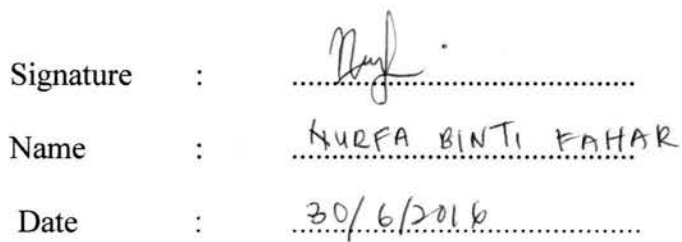 Signature :
Name : NURFA BINTI FAHAR
Date : 30/6/2016